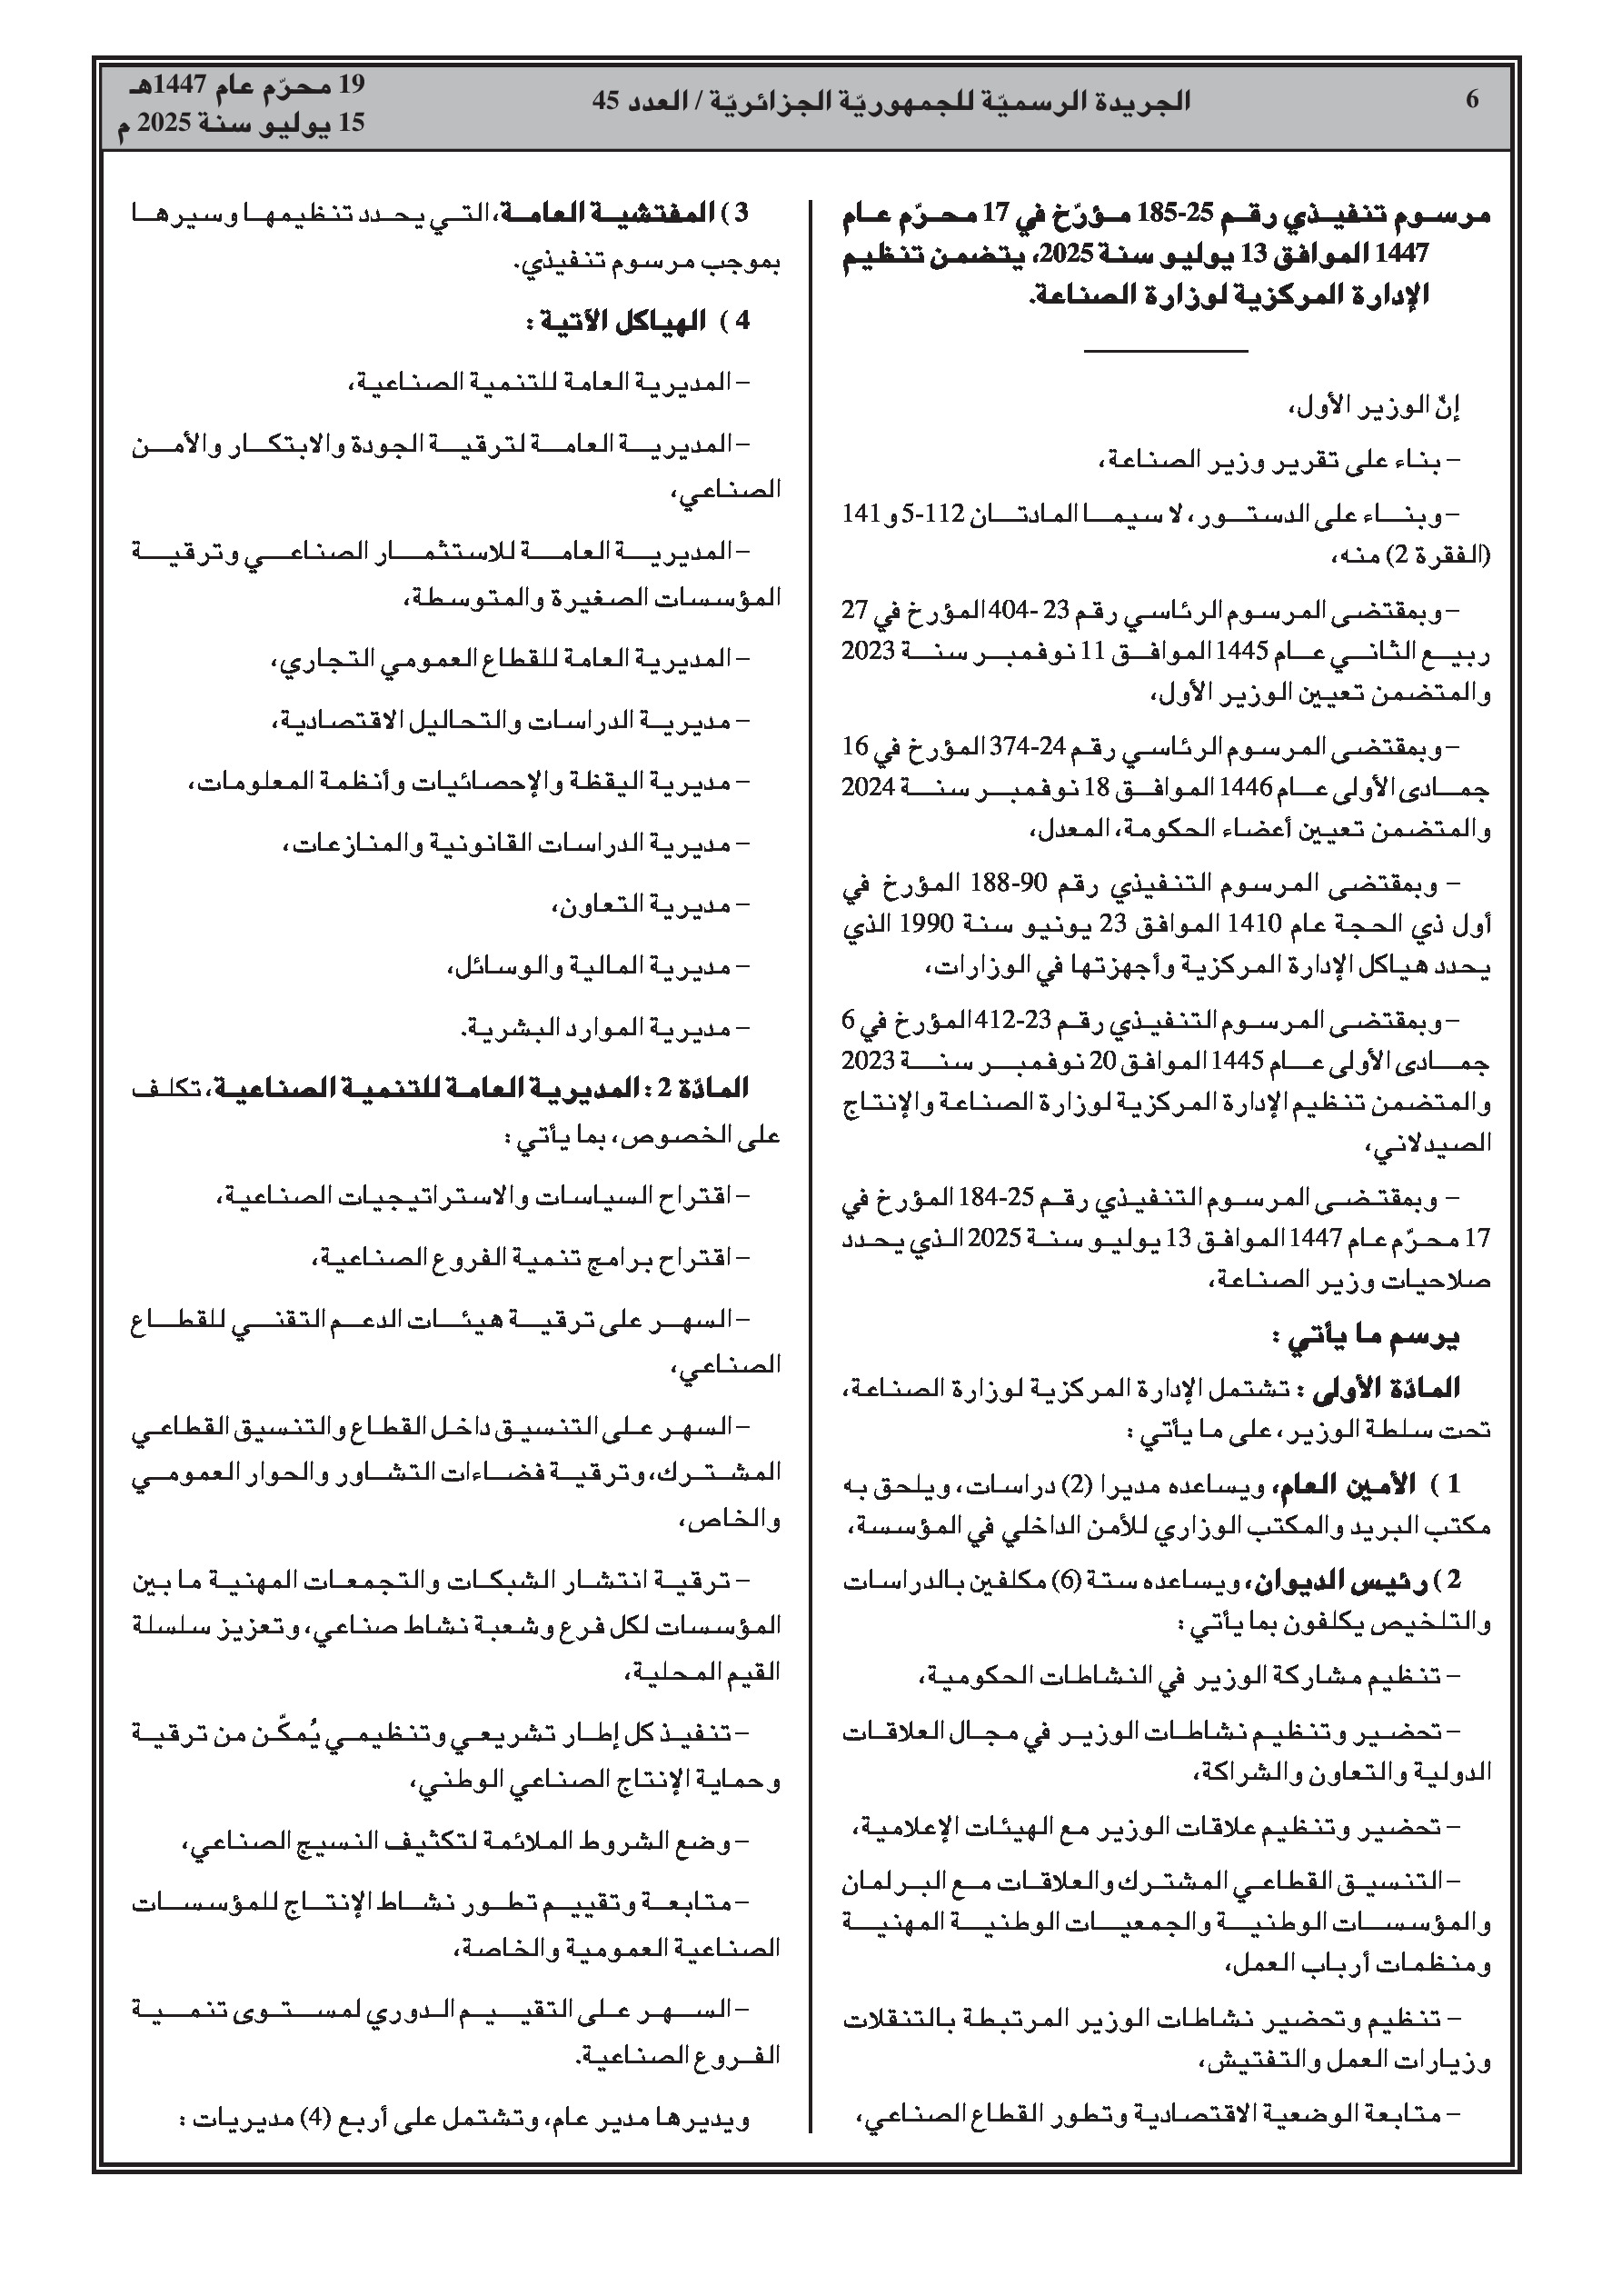 6
الجريدة الرسميّة للجمهوريّة الجزائريّة / العدد 45
19 محرّم عام 1447هـ
15 يوليو سنة 2025 م
مرسوم تنفيذي رقم 25-185 مؤرّخ في 17 محرّم عام
1447 الموافق 13 يوليو سنة 2025، يتضمن تنظيم
الإدارة المركزية لوزارة الصناعة.
إنّ الوزير الأول،
– بناء على تقرير وزير الصناعة،
– وبناء على الدستور، لا سيما المادتان 112-5 و141
(الفقرة 2) منه،
– وبمقتضى المرسوم الرئاسي رقم 23 -404 المؤرخ في 27
ربيع الثاني عام 1445 الموافق 11 نوفمبر سنة 2023
والمتضمن تعيين الوزير الأول،
– وبمقتضى المرسوم الرئاسي رقم 24-374 المؤرخ في 16
جمادى الأولى عام 1446 الموافق 18 نوفمبر سنة 2024
والمتضمن تعيين أعضاء الحكومة، المعدل،
– وبمقتضى المرسوم التنفيذي رقم 90-188 المؤرخ في
أول ذي الحجة عام 1410 الموافق 23 يونيو سنة 1990 الذي
يحدد هياكل الإدارة المركزية وأجهزتها في الوزارات،
– وبمقتضى المرسوم التنفيذي رقم 23-412 المؤرخ في 6
جمادى الأولى عام 1445 الموافق 20 نوفمبر سنة 2023
والمتضمن تنظيم الإدارة المركزية لوزارة الصناعة والإنتاج
الصيدلاني،
– وبمقتضى المرسوم التنفيذي رقم 25-184 المؤرخ في
17 محرّم عام 1447 الموافق 13 يوليو سنة 2025 الذي يحدد
صلاحيات وزير الصناعة،
يرسم ما يأتي :
المادّة الأولى : تشتمل الإدارة المركزية لوزارة الصناعة،
تحت سلطة الوزير، على ما يأتي :
1 ) الأمين العام، ويساعده مديرا (2) دراسات، ويلحق به
مكتب البريد والمكتب الوزاري للأمن الداخلي في المؤسسة،
2 ) رئيس الديوان، ويساعده ستة (6) مكلفين بالدراسات
والتلخيص يكلفون بما يأتي :
– تنظيم مشاركة الوزير في النشاطات الحكومية،
– تحضير وتنظيم نشاطات الوزير في مجال العلاقات
الدولية والتعاون والشراكة،
– تحضير وتنظيم علاقات الوزير مع الهيئات الإعلامية،
– التنسيق القطاعي المشترك والعلاقات مع البرلمان
والمؤسسات الوطنية والجمعيات الوطنية المهنية
ومنظمات أرباب العمل،
– تنظيم وتحضير نشاطات الوزير المرتبطة بالتنقلات
وزيارات العمل والتفتيش،
– متابعة الوضعية الاقتصادية وتطور القطاع الصناعي،
3 ) المفتشية العامة، التي يحدد تنظيمها وسيرها
بموجب مرسوم تنفيذي.
4 ) الهياكل الآتية :
– المديرية العامة للتنمية الصناعية،
– المديرية العامة لترقية الجودة والابتكار والأمن
الصناعي،
– المديرية العامة للاستثمار الصناعي وترقية
المؤسسات الصغيرة والمتوسطة،
– المديرية العامة للقطاع العمومي التجاري،
– مديرية الدراسات والتحاليل الاقتصادية،
– مديرية اليقظة والإحصائيات وأنظمة المعلومات،
– مديرية الدراسات القانونية والمنازعات،
– مديرية التعاون،
– مديرية المالية والوسائل،
– مديرية الموارد البشرية.
المادّة 2 : المديرية العامة للتنمية الصناعية، تكلف
على الخصوص، بما يأتي :
– اقتراح السياسات والاستراتيجيات الصناعية،
– اقتراح برامج تنمية الفروع الصناعية،
– السهر على ترقية هيئات الدعم التقني للقطاع
الصناعي،
– السهر على التنسيق داخل القطاع والتنسيق القطاعي
المشترك، وترقية فضاءات التشاور والحوار العمومي
والخاص،
– ترقية انتشار الشبكات والتجمعات المهنية ما بين
المؤسسات لكل فرع وشعبة نشاط صناعي، وتعزيز سلسلة
القيم المحلية،
– تنفيذ كل إطار تشريعي وتنظيمي يُمكّن من ترقية
وحماية الإنتاج الصناعي الوطني،
– وضع الشروط الملائمة لتكثيف النسيج الصناعي،
– متابعة وتقييم تطور نشاط الإنتاج للمؤسسات
الصناعية العمومية والخاصة،
– السهر على التقييم الدوري لمستوى تنمية
الفروع الصناعية.
ويديرها مدير عام، وتشتمل على أربع (4) مديريات :